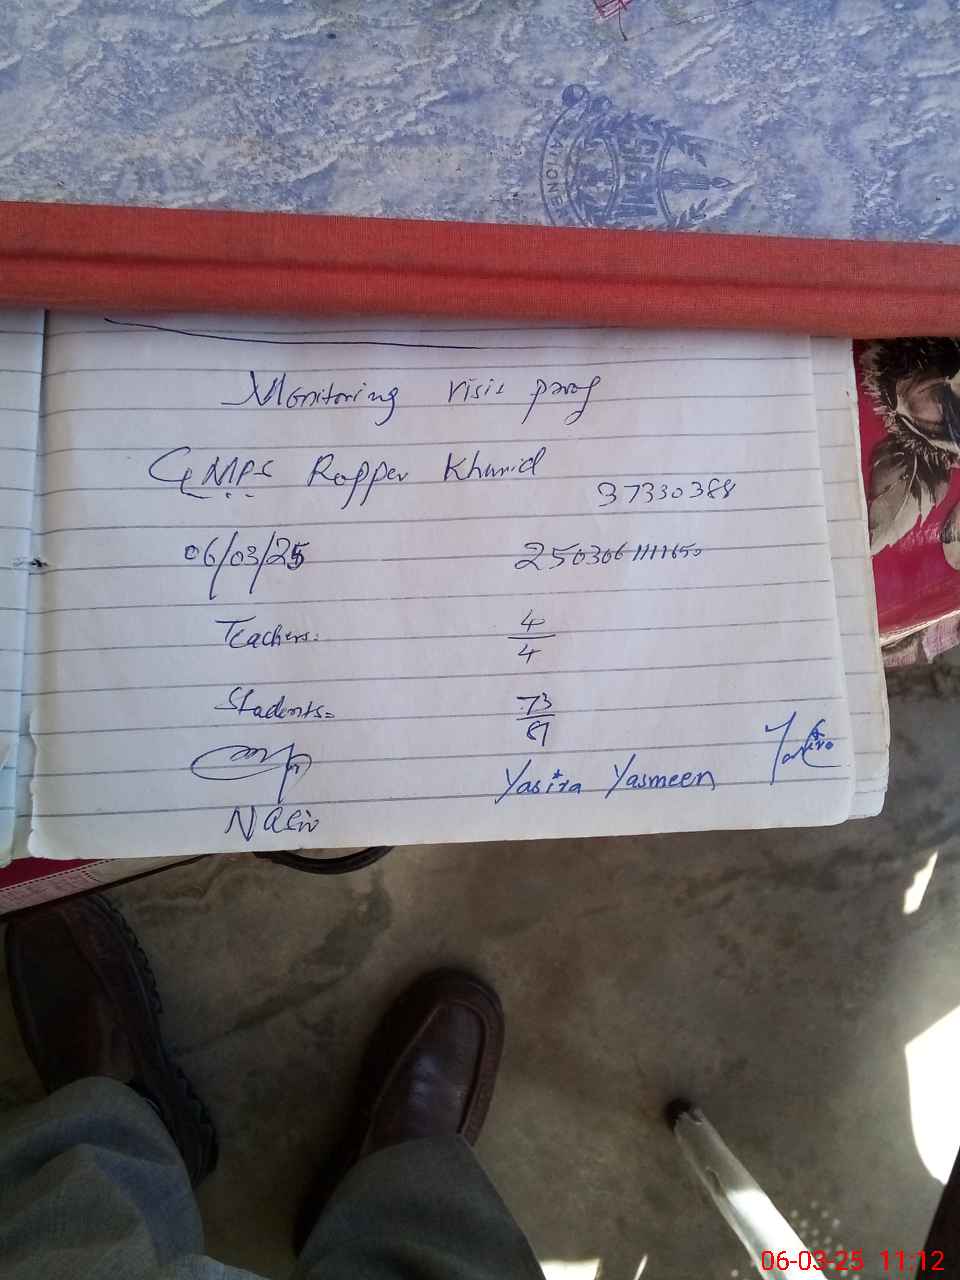 Monitoring visit prog
GMPS Ropper Khurd
37330388
06/03/25 2503061111650
Teachers: 4/4
Students= 73/81
Yasira Yasmeen
06-03-25 11:12